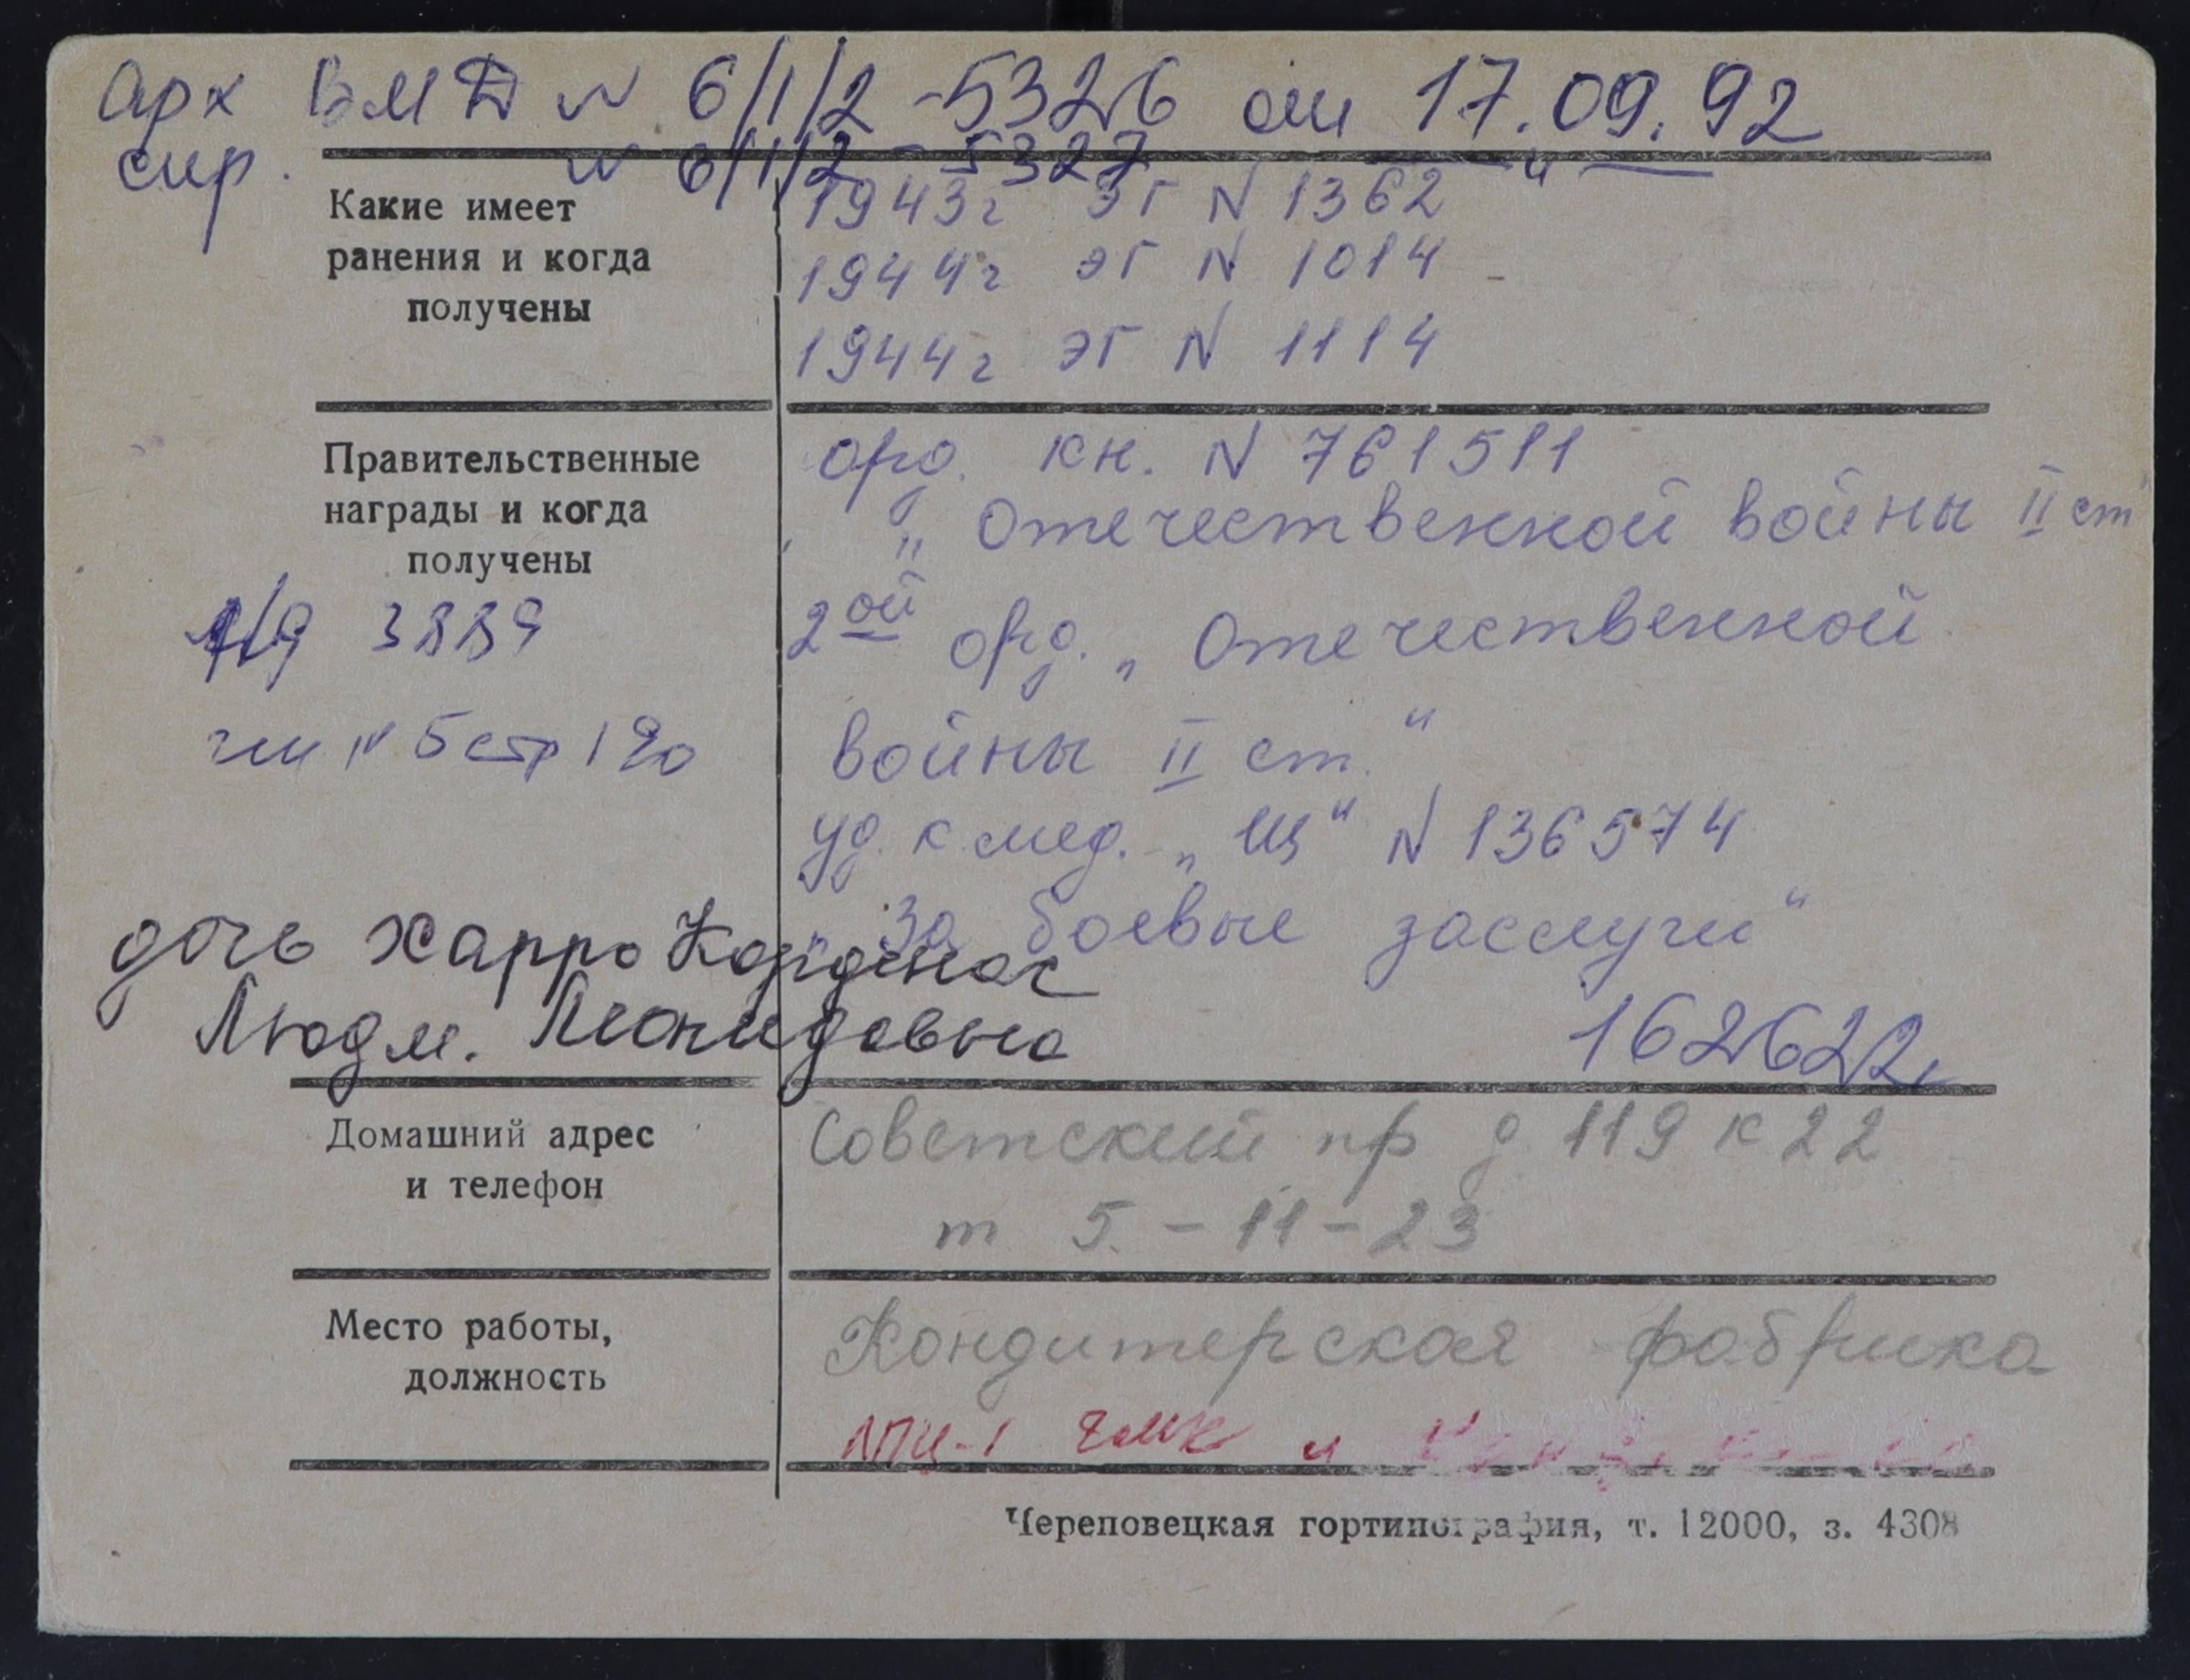 Арх ВМД № 6/1/2 -5326 от 17.09.92
спр. № 6/1/2 - 5327 — " —
Какие имеет
ранения и когда
получены
1943г ЭГ N 1362
1944г ЭГ N 1014
1944г ЭГ N 1114
Правительственные
награды и когда
получены
орд. кн. N 761511
„ Отечественной войны II ст"
2ой орд. „ Отечественной
войны II ст."
уд. к мед. „ЦЦ" N 136574
„За боевые заслуги"
162622
л/д 3889
N 5 стр 190
дочь Харро Карденас
Людм. Леонидовна
Домашний адрес
и телефон
Советский пр д 119 к 22
т 5. - 11 - 23
Место работы,
должность
Кондитерская фабрика
ЛПЦ-1 ЧМК и
Череповецкая гортипография, т. 12000, з. 4308